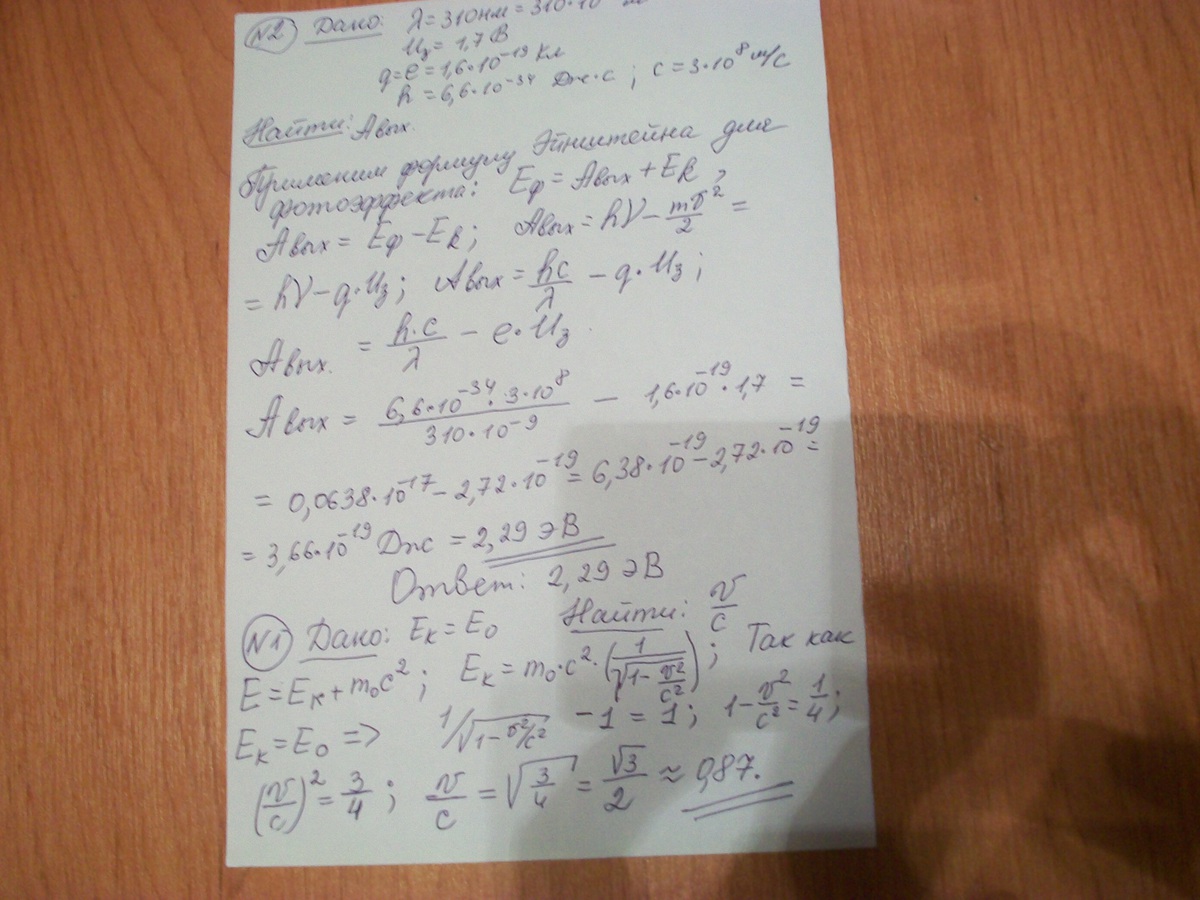 №2 Дано: λ = 310 нм = 310·10
Uз = 1,7 В
q = e = 1,6·10⁻¹⁹ Кл
h = 6,6·10⁻³⁴ Дж·с ; c = 3·10⁸ м/с
Найти: Aвых.
Применим формулу Эйнштейна для
фотоэффекта: Eф = Aвых + Eк,
Aвых = Eф − Eк; Aвых = hν − mv²/2 =
= hν − q·Uз; Aвых = hc/λ − q·Uз;
Aвых. = h·c/λ − e·Uз.
Aвых = 6,6·10⁻³⁴·3·10⁸/310·10⁻⁹ − 1,6·10⁻¹⁹·1,7 =
= 0,0638·10⁻¹⁷ − 2,72·10⁻¹⁹ = 6,38·10⁻¹⁹ − 2,72·10⁻¹⁹ =
= 3,66·10⁻¹⁹ Дж = 2,29 эВ
Ответ: 2,29 эВ
№1 Дано: Eк = E₀ Найти: v/c
E = Eк + m₀c²; Eк = m₀·c²·(1/√(1 − v²/c²)); Так как
Eк = E₀ => 1/√(1 − v²/c²) − 1 = 1; 1 − v²/c² = 1/4;
(v/c)² = 3/4; v/c = √(3/4) = √3/2 ≈ 0,87.